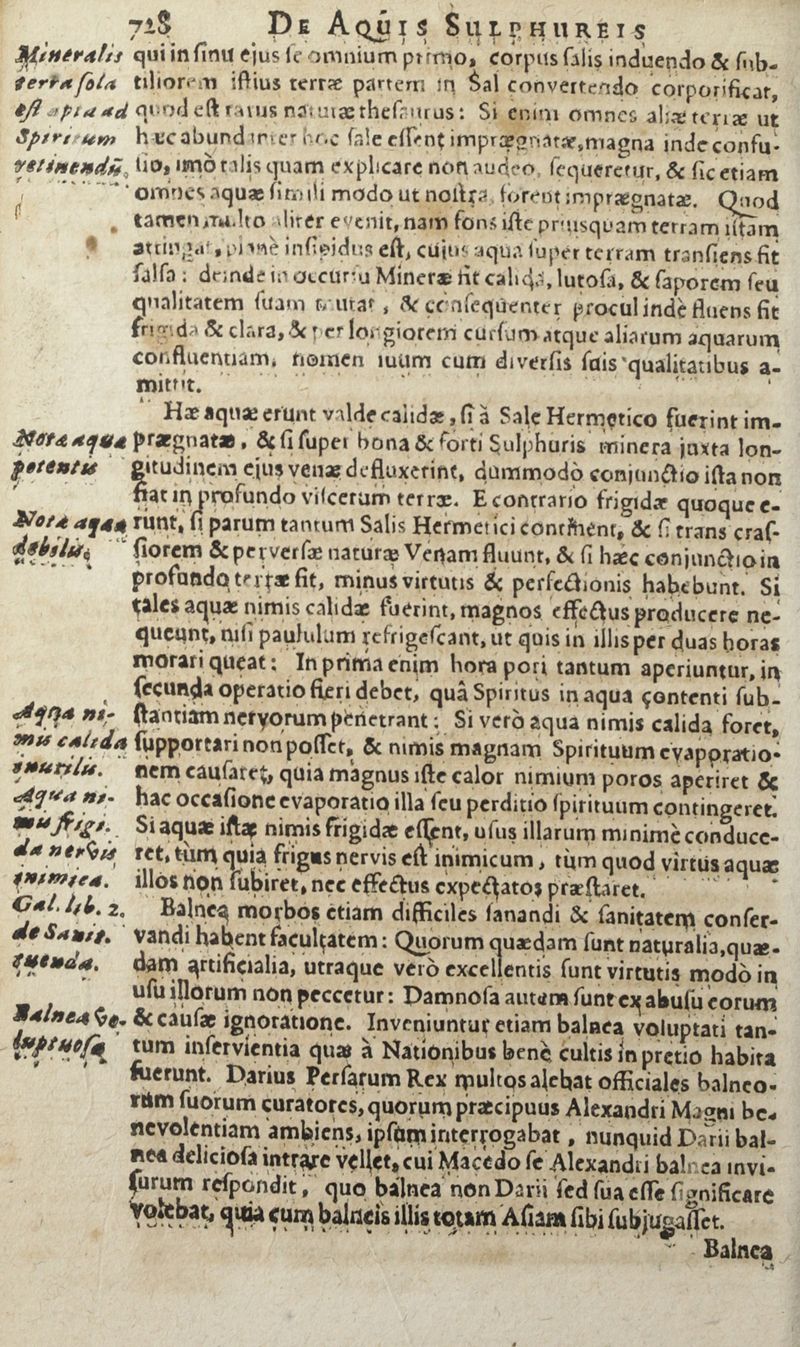 728 DE AQUIS SULPHUREIS
Mineralis qui in sinu ejus se omnium primo, corpus salis induendo & sub-
terra sola tiliorem istius terræ partem in Sal convertendo corporificat,
est apta ad quod est ratus naturæ thesaurus: Si enim omnes aliæ terræ ut
Spiritum hæc abundanter hoc sale essent imprægnatæ, magna inde confu-
retinendū, sio, imò talis quam explicare non audeo, sequeretur, & sic etiam
omnes aquæ simili modo ut nostra, forent imprægnatæ. Quod
tamen multo aliter evenit, nam fons iste priusquam terram istam
attingat, planè insipidus est, cujus aqua super terram transiens fit
salsa: deinde in occursu Mineræ fit calida, lutosa, & saporem seu
qualitatem suam mutat, & consequenter procul indè fluens fit
frigida & clara, & per longiorem cursum atque aliarum aquarum
confluentiam, nomen suum cum diversis suis qualitatibus a-
mittit.
Hæ aquæ erunt valde calidæ, si à Sale Hermetico fuerint im-
Nota aqua prægnatæ, & si super bona & forti Sulphuris minera juxta lon-
potentis gitudinem ejus venæ defluxerint, dummodò conjunctio ista non
fiat in profundo viscerum terræ. E contrario frigidæ quoque e-
Nota aqua runt, si parum tantum Salis Hermetici continent, & si trans cras-
debilis. siorem & perversæ naturæ Venam fluunt, & si hæc conjunctio in
profundo terræ fit, minus virtutis & perfectionis habebunt. Si
tales aquæ nimis calidæ fuerint, magnos effectus producere ne-
queunt, nisi paululum refrigescant, ut quis in illis per duas horas
morari queat: In prima enim hora pori tantum aperiuntur, in
secunda operatio fieri debet, quâ Spiritus in aqua contenti sub-
Aqua ni- stantiam nervorum penetrant: Si verò aqua nimis calida foret,
mis calida supportari non posset, & nimis magnam Spirituum evaporatio-
inutilis. nem causaret, quia magnus iste calor nimium poros aperiret &
Aqua ni- hac occasione evaporatio illa seu perditio spirituum contingeret.
mis frigi- Si aquæ istæ nimis frigidæ essent, usus illarum minimè conduce-
da nervis ret, tùm quia frigus nervis est inimicum, tùm quod virtus aquæ
inimica. illos non subiret, nec effectus expectatos præstaret.
Gal. lib. 2. Balnea morbos etiam difficiles sanandi & sanitatem confer-
de Sanit. vandi habent facultatem: Quorum quædam sunt naturalia, quæ-
tuenda. dam artificialia, utraque verò excellentis sunt virtutis modò in
usu illorum non peccetur: Damnosa autem sunt ex abusu eorum
Balnea vo- & causæ ignoratione. Inveniuntur etiam balnea voluptati tan-
luptuosa tum inservientia quæ à Nationibus benè cultis in pretio habita
fuerunt. Darius Persarum Rex multos alebat officiales balneo-
rum suorum curatores, quorum præcipuus Alexandri Magni be-
nevolentiam ambiens, ipsum interrogabat, nunquid Darii bal-
nea deliciosa intrare vellet, cui Macedo se Alexandri balnea invi-
surum respondit, quo balnea non Darii sed sua esse significare
volebat, quia cum balneis illis totam Asiam sibi subjugasset.
Balnea